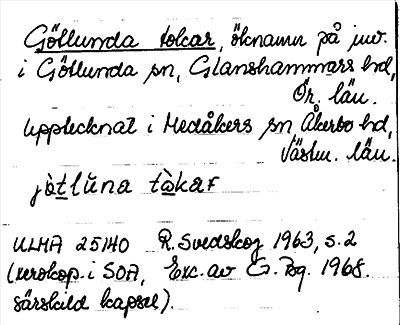 Götlunda tolcar, öknamn på inv.
i Götlunda sn, Glanshammars hd,
Ör. län.
Upptecknat i Medåkers sn Åkerbo hd,
Västm. län.
jòtlŭna tàkar
ULMA 25140 R. Svedskog 1963, s. 2
(xerokop. i SOA, Exc. av 1968.
särskild kapsel).